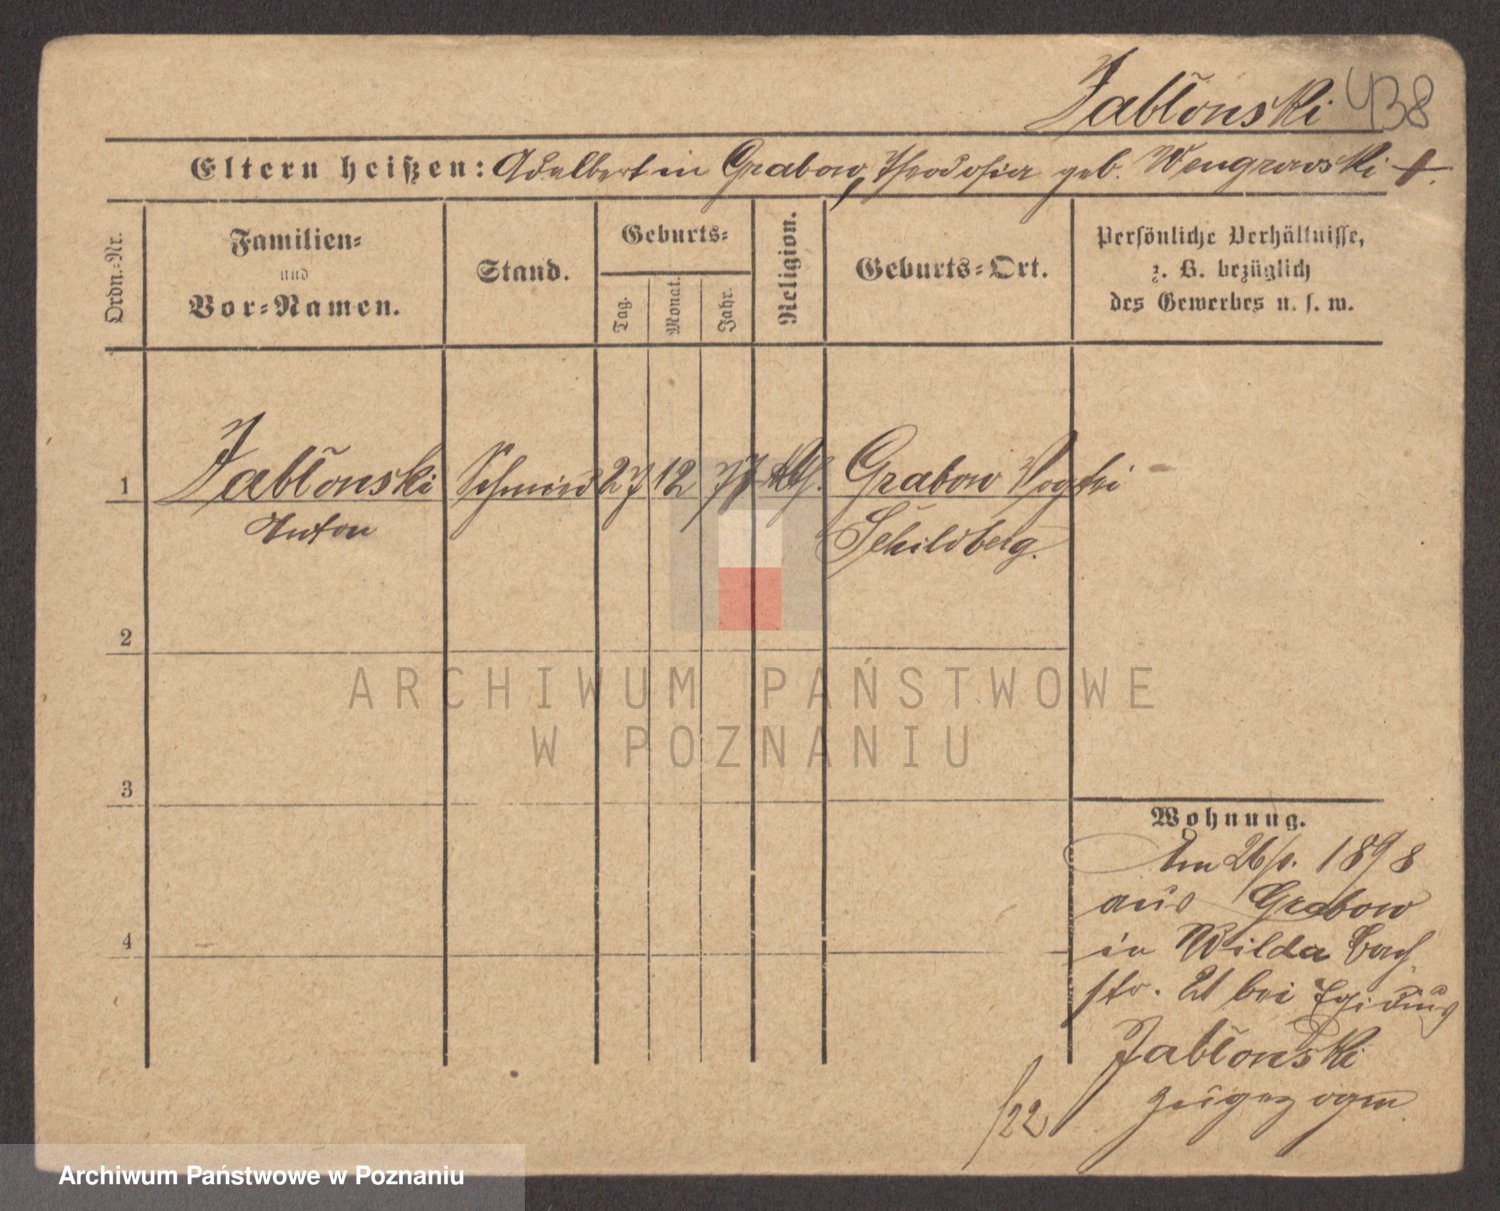 Jabłonski 438
Eltern heißen: Adalbert in Grabow, Theodosia geb. Wengrowski †.
Ordn.-Nr.
Familien-
und
Vor-Namen.
Stand.
Geburts-
Tag.
Monat.
Jahr.
Religion.
Geburts-Ort.
Persönliche Verhältnisse,
z. B. bezüglich
des Gewerbes u. s. w.
1 Jabłonski Schmied 27 12 77 kth. Grabow Vogtei
Anton
Schildberg.
2
ARCHIWUM PAŃSTWOWE
W POZNANIU
3
Wohnung.
Am 26/ 1898
aus Grabow
4
in Wilda
str. 21 bei Egidius
Jabłonski
zugezogen.
/22
Archiwum Państwowe w Poznaniu